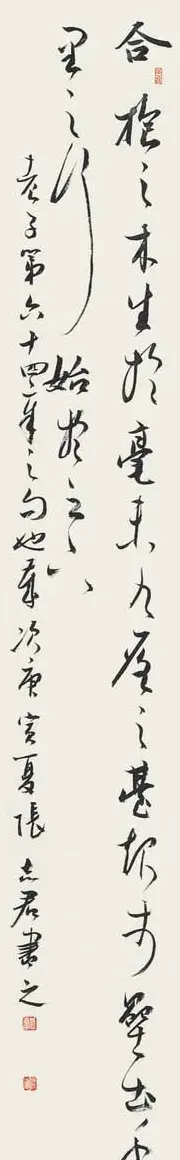 合抱之木生於毫末九層之臺起於壘土千
里之行始於足下
老子第六十四章之句也歲次庚寅夏張志君書之